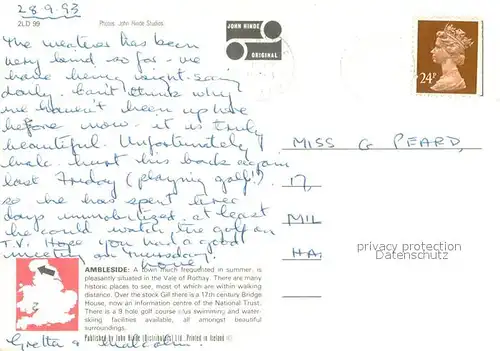 28.9.93
2LD 99
Photos: John Hinde Studios
JOHN HINDE
ORIGINAL
24P
The weather has been
very kind so far - we
have being sight-seeing
daily. Can't think why
we haven't been up here
before now - it is truly
beautiful. Unfortunately
Malc. hurt his back again
last Friday (playing golf!).
so he has spent three
days immobilized. at least
he could watch the golf on
T.V. Hope you had a good
meeting on Tuesday.
Love
Gretta & Malcolm.
MISS G PEARD,
17
MIL
HA
privacy protection
Datenschutz
AMBLESIDE: A town much frequented in summer, is
pleasantly situated in the Vale of Rothay. There are many
historic places to see, most of which are within walking
distance. Over the stock Gill there is a 17th century Bridge
House, now an information centre of the National Trust.
There is a 9 hole golf course plus swimming and water-
skiing facilities available, all amongst beautiful
surroundings.
Published by John Hinde (Distributors) Ltd. Printed in Ireland